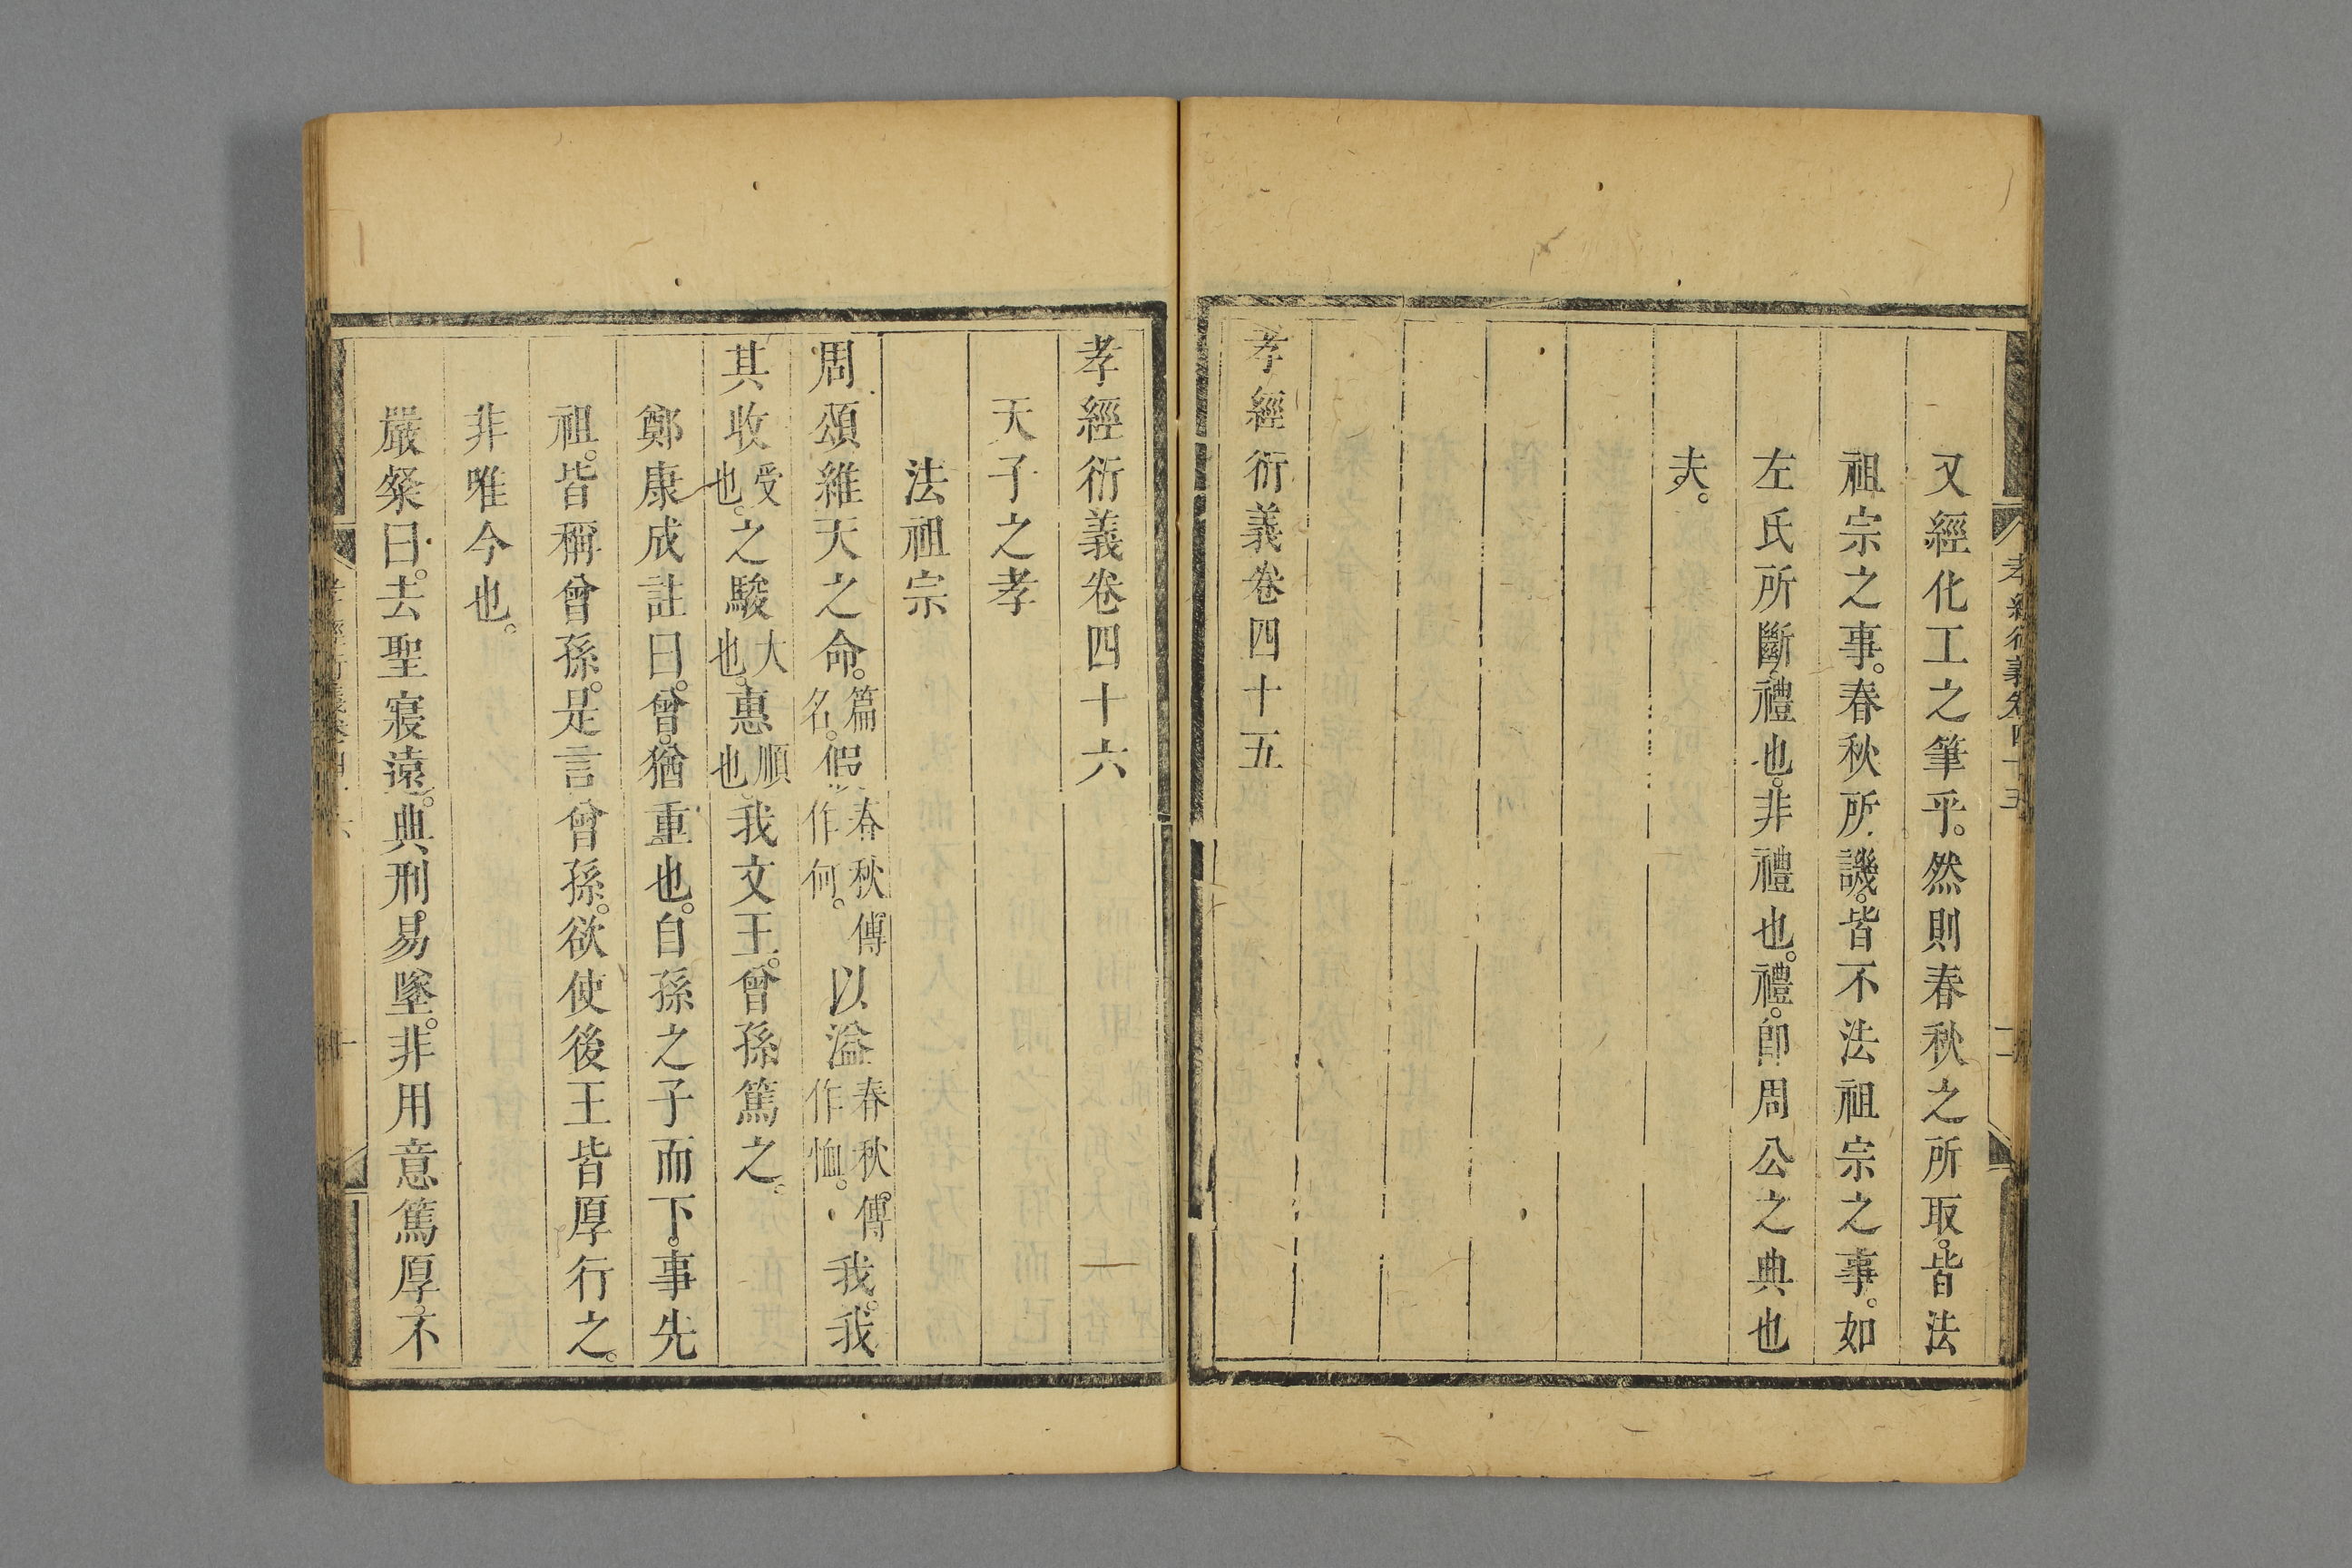 又經化工之筆乎。然則春秋之所取。皆法
祖宗之事。春秋所譏。皆不法祖宗之事。如
左氏所斷禮也。非禮也。禮。卽周公之典也
夫。
孝經衍義卷四十五
孝經衍義卷四十六
天子之孝
法祖宗
周頌維天之命。篇名。假春秋傳作何。以溢春秋傳作恤。我。我
其收受也。之駿大也。惠順也。我文王。曾孫篤之。
鄭康成註曰。曾。猶重也。自孫之子而下。事先
祖。皆稱曾孫。是言曾孫。欲使後王皆厚行之。
非唯今也。
嚴粲曰。去聖寖遠。典刑易墜。非用意篤厚。不